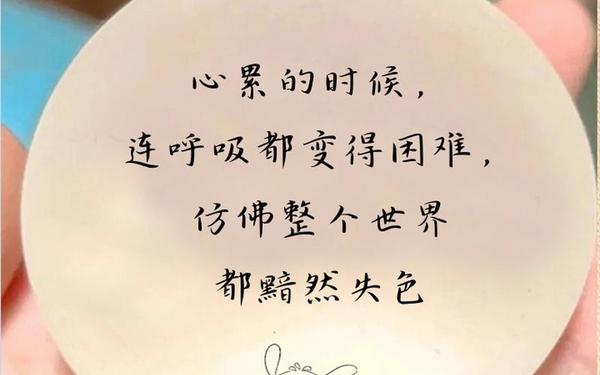 心累的时候，
连呼吸都变得困难，
仿佛整个世界
都黯然失色